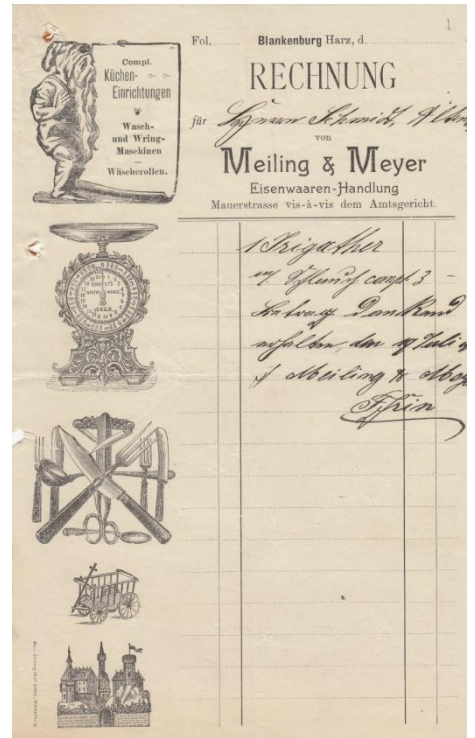 Compl.
Küchen-
Einrichtungen
Wasch-
und Wring-
Maschinen
Wäscherollen.
Fol. Blankenburg Harz, d.
RECHNUNG
für Herrn Schmidt,
von
Meiling & Meyer
Eisenwaaren-Handlung
Mauerstrasse vis-à-vis dem Amtsgericht.
1 Irrigather
m Schlauch compt 3 -
Betrag Dankend
erhalten, den 9 Juli
Meiling & Mey